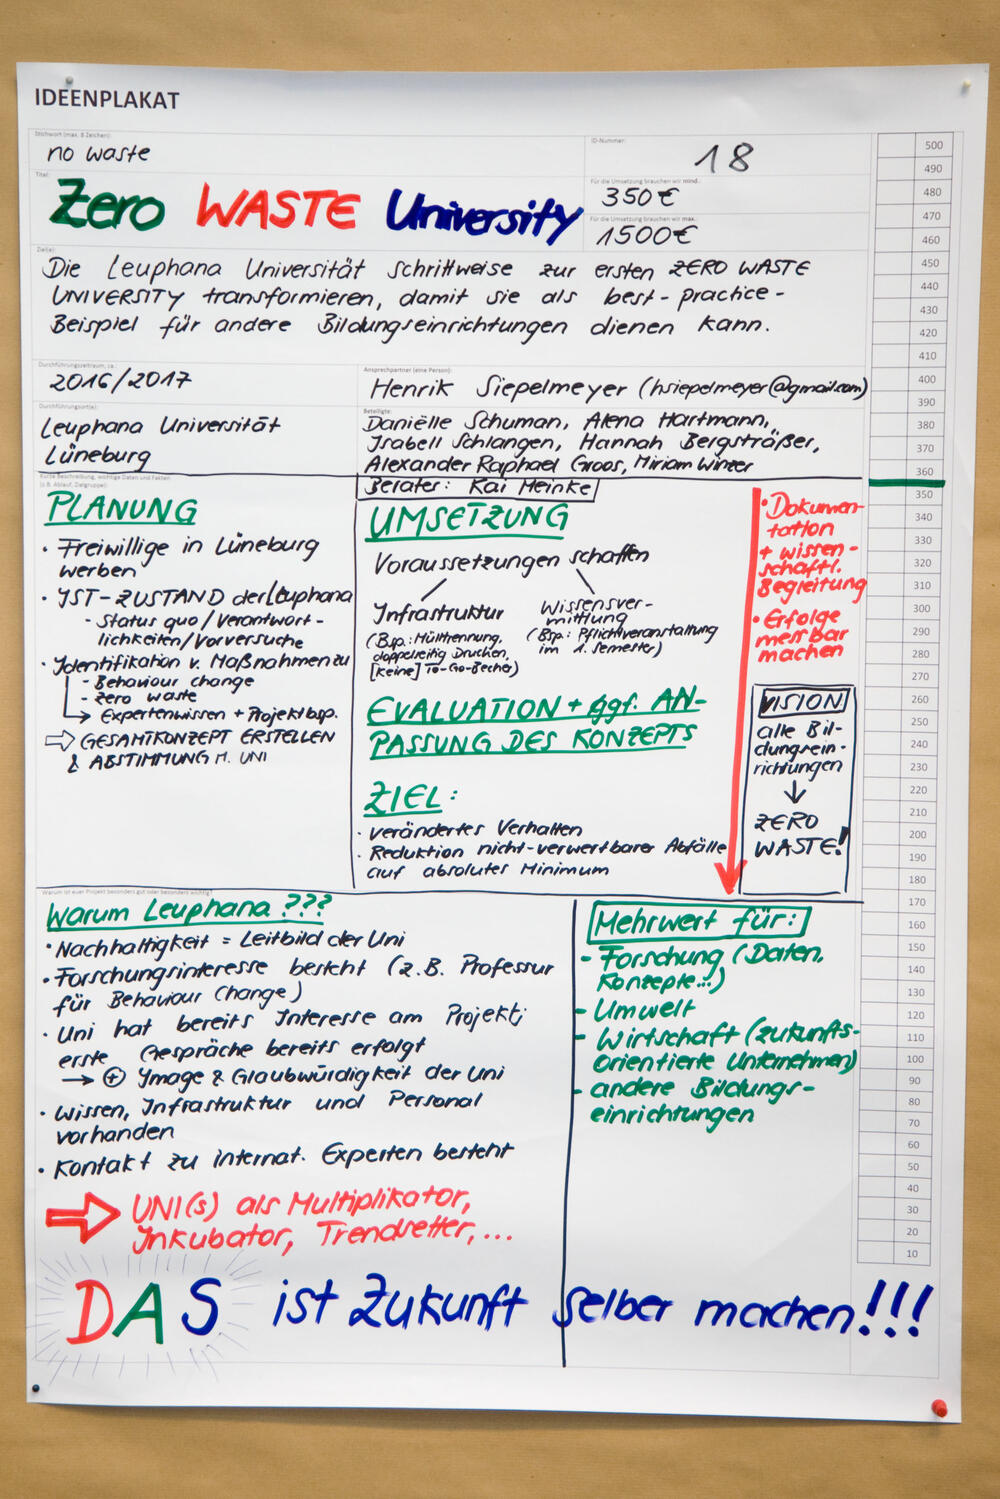 IDEENPLAKAT
Stichwort (max. 8 Zeichen):
no waste
ID-Nummer:
18
Titel:
Zero WASTE University
Für die Umsetzung brauchen wir mind.:
350€
Für die Umsetzung brauchen wir max.:
1500€
Ziel(e):
Die Leuphana Universität schrittweise zur ersten ZERO WASTE
UNIVERSITY transformieren, damit sie als best-practice-
Beispiel für andere Bildungseinrichtungen dienen kann.
Durchführungszeitraum, ca.:
2016/2017
Ansprechpartner (eine Person):
Henrik Siepelmeyer (hsiepelmeyer@gmail.com)
Durchführungsort(e):
Leuphana Universität
Lüneburg
Beteiligte:
Daniëlle Schuman, Alena Hartmann,
Isabell Schlangen, Hannah Bergsträßer,
Alexander Raphael Groos, Miriam Winzer
Berater: Kai Meinke
Kurze Beschreibung, wichtige Daten und Fakten
(z.B. Ablauf, Zielgruppe):
PLANUNG
· Freiwillige in Lüneburg
werben
· IST-ZUSTAND der Leuphana
- Status quo/Verantwort-
lichkeiten/Vorversuche
· Identifikation v. Maßnahmen zu
- Behaviour change
- zero waste
→ Expertenwissen + Projektbsp.
⇒ GESAMTKONZEPT ERSTELLEN
& ABSTIMMUNG M. UNI
UMSETZUNG
Voraussetzungen schaffen
Infrastruktur
(Bsp.: Mülltrennung,
doppelseitig Drucken,
[keine] To-Go-Becher)
Wissensver-
mittlung
(Bsp.: Pflichtveranstaltung
im 1. Semester)
EVALUATION + ggf. AN-
PASSUNG DES KONZEPTS
ZIEL:
· verändertes Verhalten
· Reduktion nicht-verwertbarer Abfälle
auf absolutes Minimum
· Dokumen-
tation
+ wissen-
schaftl.
Begleitung
· Erfolge
messbar
machen
VISION
alle Bil-
dungsein-
richtungen
↓
ZERO
WASTE!
Warum ist euer Projekt besonders gut oder besonders wichtig?
Warum Leuphana ???
· Nachhaltigkeit = Leitbild der Uni
· Forschungsinteresse besteht (z.B. Professur
für Behaviour Change)
· Uni hat bereits Interesse am Projekt;
erste Gespräche bereits erfolgt
→ ⊕ Image & Glaubwürdigkeit der Uni
· Wissen, Infrastruktur und Personal
vorhanden
· Kontakt zu internat. Experten besteht
⇒ UNI(s) als Multiplikator,
Inkubator, Trendsetter, ...
Mehrwert für:
- Forschung (Daten,
Konzepte...)
- Umwelt
- Wirtschaft (zukunfts-
orientierte Unternehmen)
- andere Bildungs-
einrichtungen
DAS ist Zukunft selber machen!!!
500
490
480
470
460
450
440
430
420
410
400
390
380
370
360
350
340
330
320
310
300
290
280
270
260
250
240
230
220
210
200
190
180
170
160
150
140
130
120
110
100
90
80
70
60
50
40
30
20
10